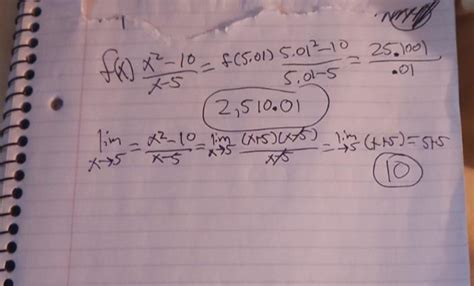 f(x) x²-10/x-5 = f(5.01) 5.01²-10/5.01-5 = 25.1001/.01
2,510.01
lim x→5 = x²-10/x-5 = lim x→5 (x+5)(x-5)/x-5 = lim →5 (x+5) = 5+5
10